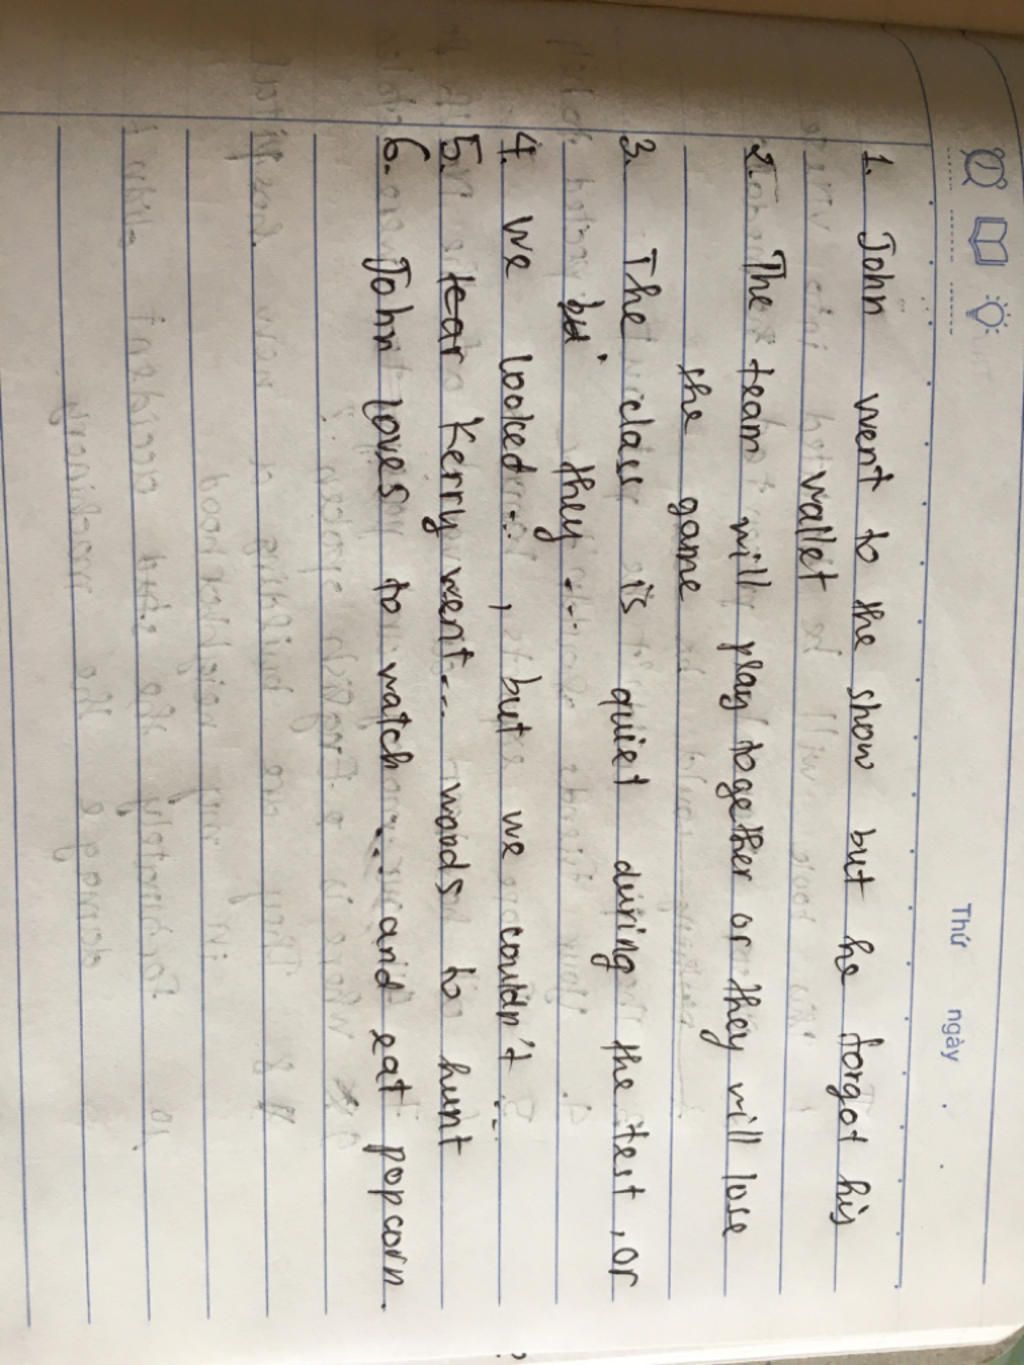 Thứ ngày
1. John went to the show but he forgot his
wallet
2. The team will play together or they will lose
the game
3. The class is quiet during the test, or
they ...
4. We looked ..., but we couldn't ...
5. Kerry went ... woods to hunt
6. John loves to watch ... and eat popcorn.